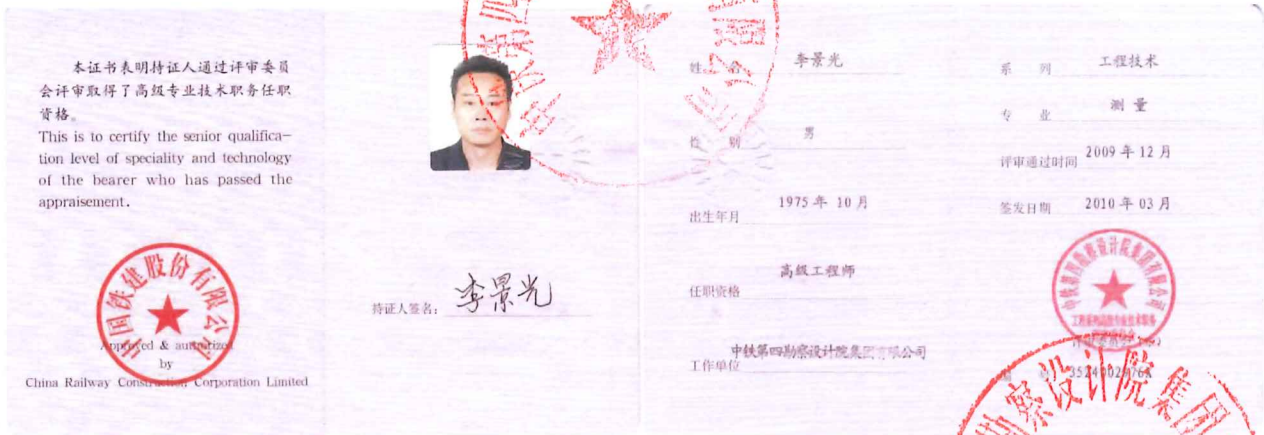 本证书表明持证人通过评审委员
会评审取得了高级专业技术职务任职
资格。
This is to certify the senior qualifica-
tion level of speciality and technology
of the bearer who has passed the
appraisement.
中国铁建股份有限公司
Approved & authorized
by
China Railway Construction Corporation Limited
持证人签名：
李景光
姓 名 李景光
性 别 男
出生年月 1975 年 10 月
任职资格 高级工程师
工作单位 中铁第四勘察设计院集团有限公司
系 列 工程技术
专 业 测 量
评审通过时间 2009 年 12 月
签发日期 2010 年 03 月
中铁第四勘察设计院集团有限公司
编 号
勘察设计院集团